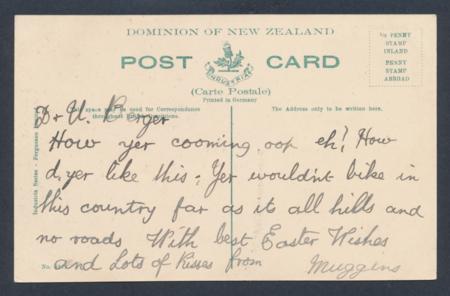 DOMINION OF NEW ZEALAND
POST CARD
INDUSTRIA
(Carte Postale)
Printed in Germany
½ PENNY
STAMP
INLAND
PENNY
STAMP
ABROAD
space may be used for Correspondence
throughout
The Address only to be written here.
Industria Series - Fergusson
Dr U. Roger
How yer cooming oop eh! How
d,yer like this; Yer wouldn't bike in
this country far as it all hills and
no roads With best Easter Wishes
and Lots of Kisses from Muggens
No.